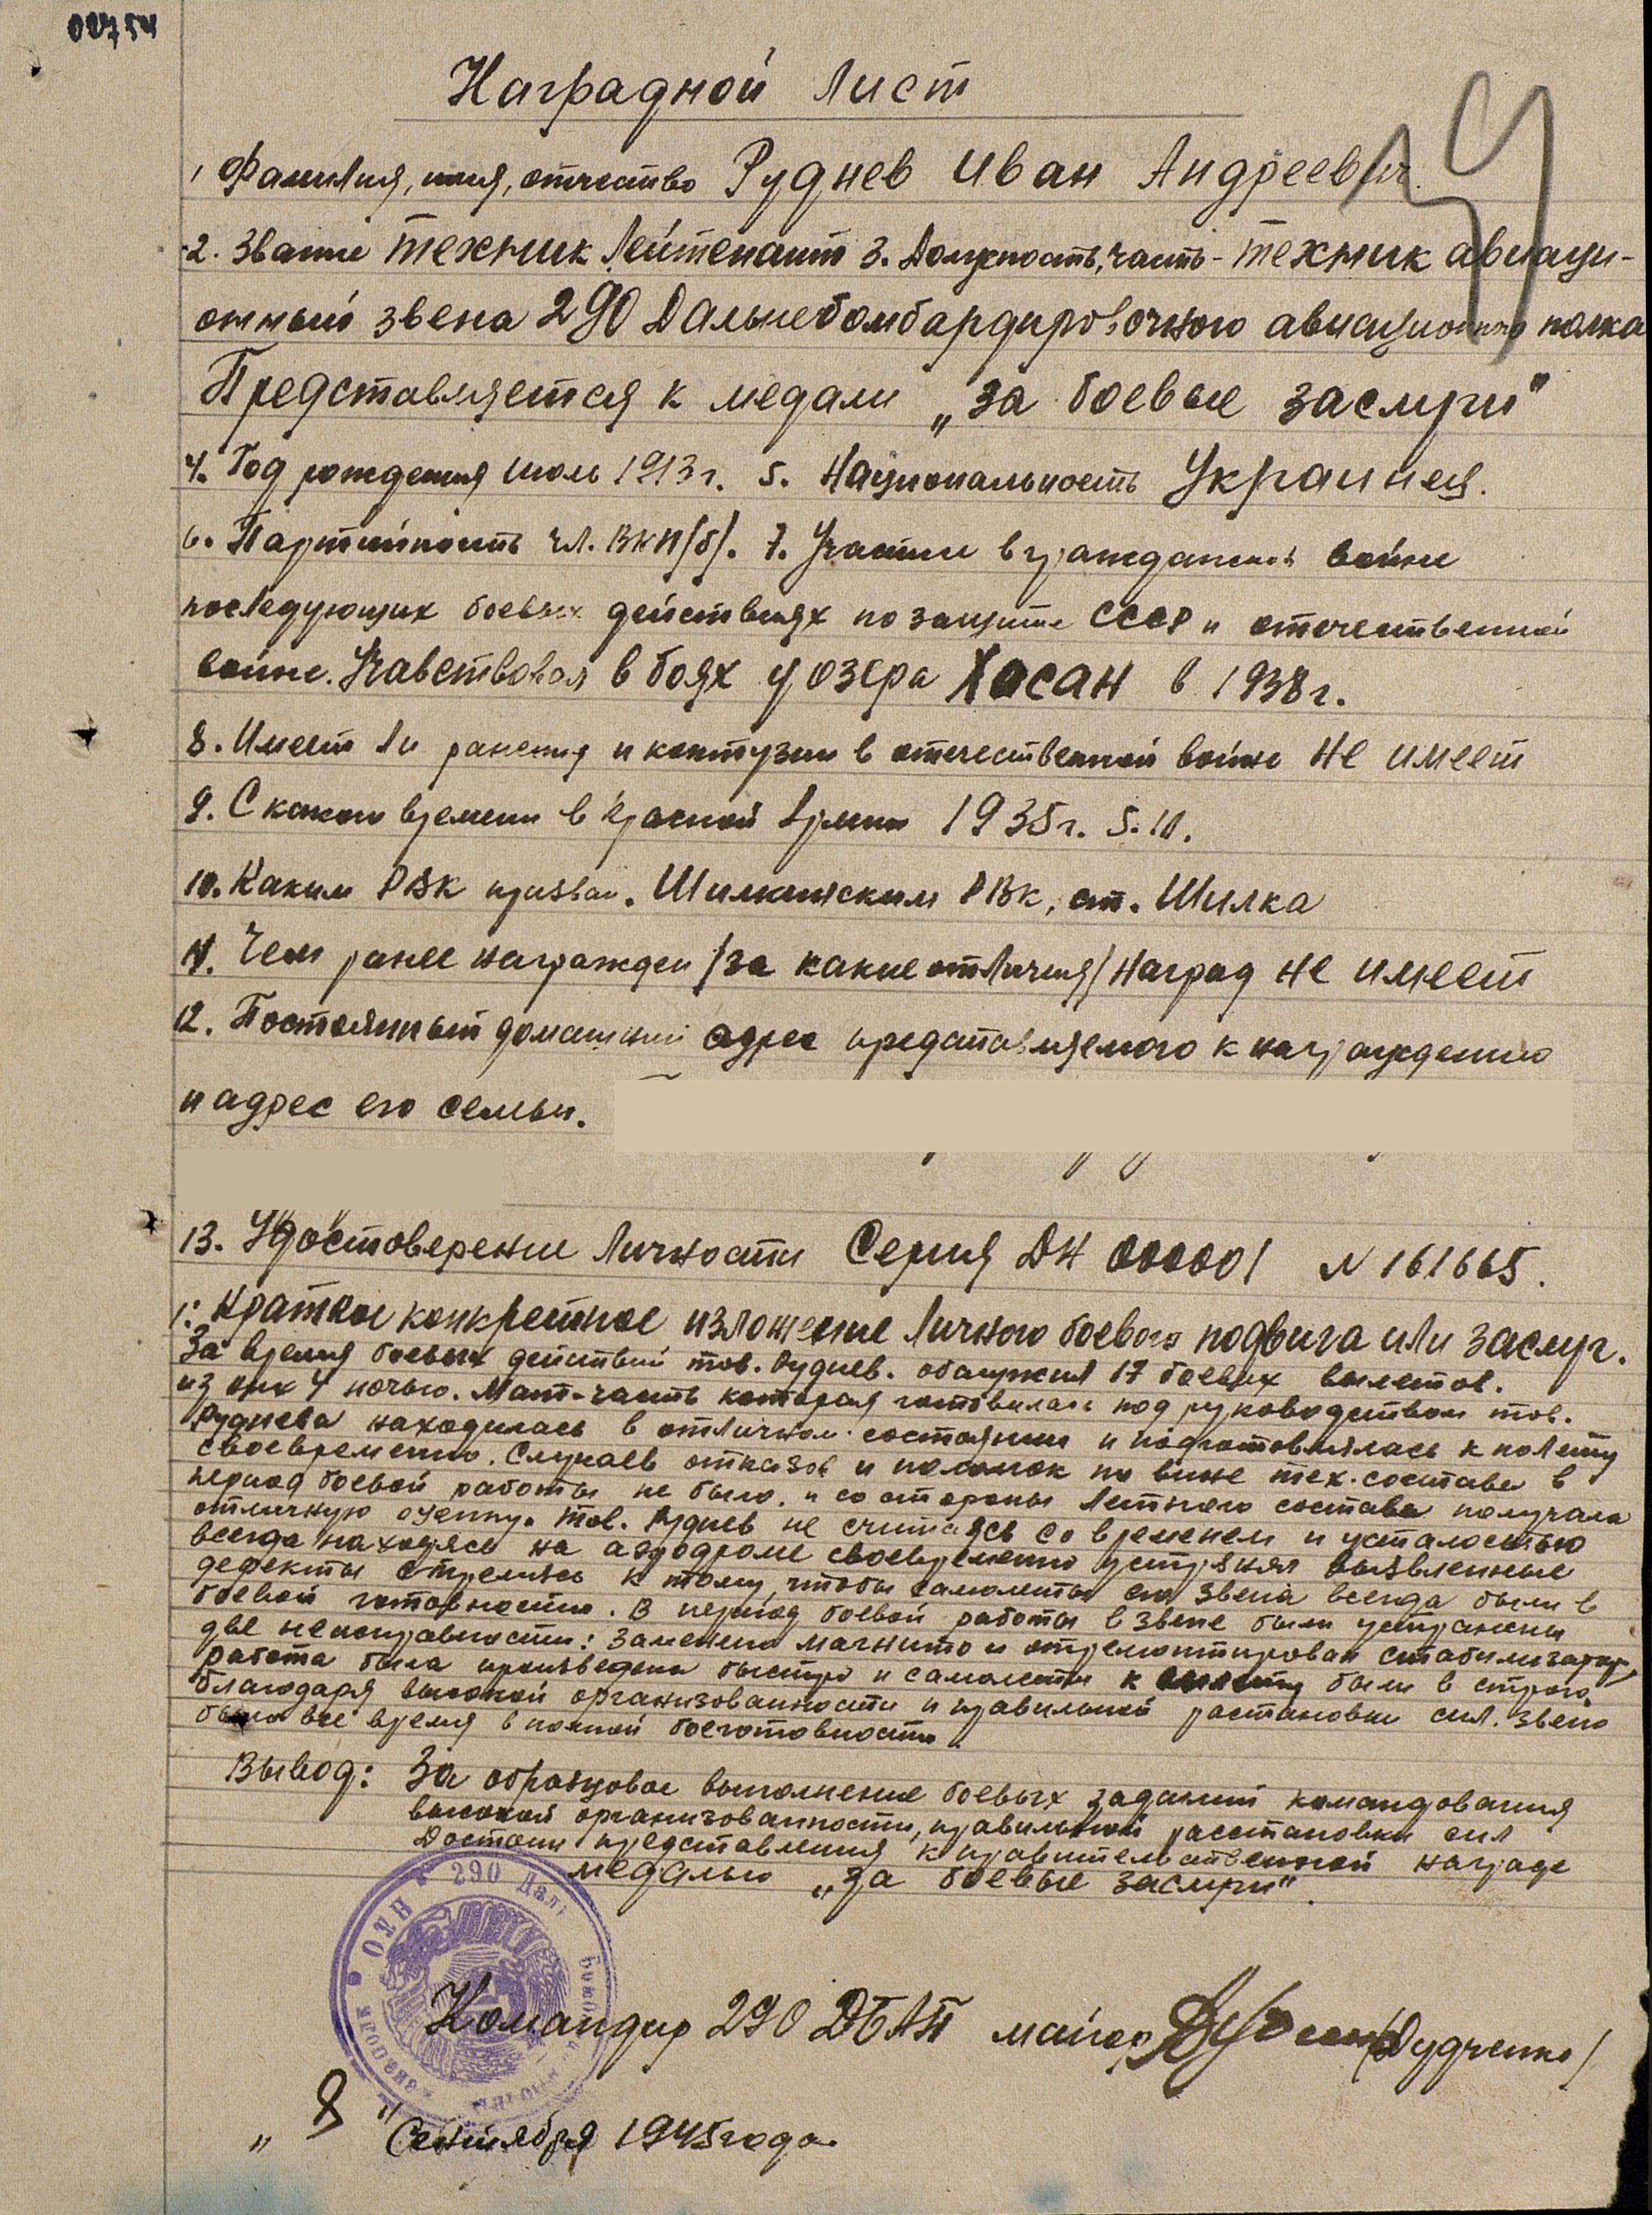 Наградной лист
1 Фамилия, имя, отчество Руднев Иван Андреевич
2. Звание техник лейтенант 3. Должность, часть - техник авиаци-
онный звена 290 Дальнебомбардировочного авиационного полка
Представляется к медали „за боевые заслуги"
4. Год рождения июль 1913 г. 5. Национальность Украинец.
6. Партийность чл. ВКП/б/. 7. Участие в гражданской войне
последующих боевых действиях по защите СССР и отечественной
войне. Учавствовал в боях у озера Хасан в 1938 г.
8. Имеет ли ранения и контузии в отечественной войне не имеет
9. С какого времени в Красной Армии 1935 г. 5.10.
10. Каким РВК призван. Шилкинским РВК, ст. Шилка
11. Чем ранее награжден /за какие отличия/ Наград не имеет
12. Постоянный домашний адрес представляемого к награждению
и адрес его семьи.
13. Удостоверение личности Серия ДН 000001 N 161665.
1: Краткое конкретное изложение личного боевого подвига или заслуг.
За время боевых действий тов. Руднев. обслужил 17 боевых вылетов.
из них 4 ночью. Мат-часть которая готовилась под руководством тов.
Руднева находилась в отличном состоянии и подготовлялась к полету
своевременно. Случаев отказов и поломок по вине тех. состава в
период боевой работы не было. и со стороны летного состава получала
отличную оценку. Тов. Руднев не считаясь со временем и усталостью
всегда находясь на аэродроме своевременно устранял выявленные
дефекты стремясь к тому, чтобы самолеты его звена всегда были в
боевой готовности. В период боевой работы в звене были устранены
две неисправности: заменено магнито и отремонтирован стабилизатор,
работа была произведена быстро и самолеты к вылету были в строю.
благодаря высокой организованности и правильной растановки сил. Звено
было все время в полной боеготовности.
Вывод: За образцовое выполнение боевых заданий командования
высокой организованности, правильной расстановки сил
Достоин представления к правительственной награде
медалью „за боевые заслуги".
290
Командир 290 ДБАП майор /Дудченко/
„8" Сентября 1945 года.